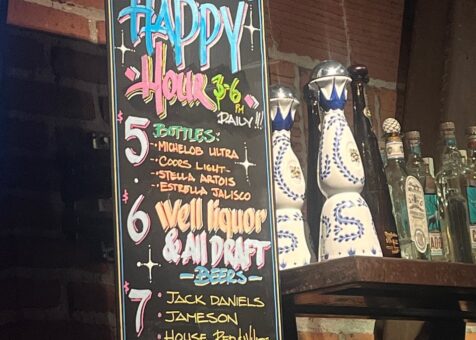 HAPPY
Hour 3-6 PM
DAILY!!!
$5 BOTTLES:
- MICHELOB ULTRA
- COORS LIGHT -
- STELLA ARTOIS
- ESTRELLA JALISCO
$6 Well liquor
& All DRAFT
- BEERS -
$7 • JACK DANIELS
• JAMESON
• HOUSE RED & WHITE